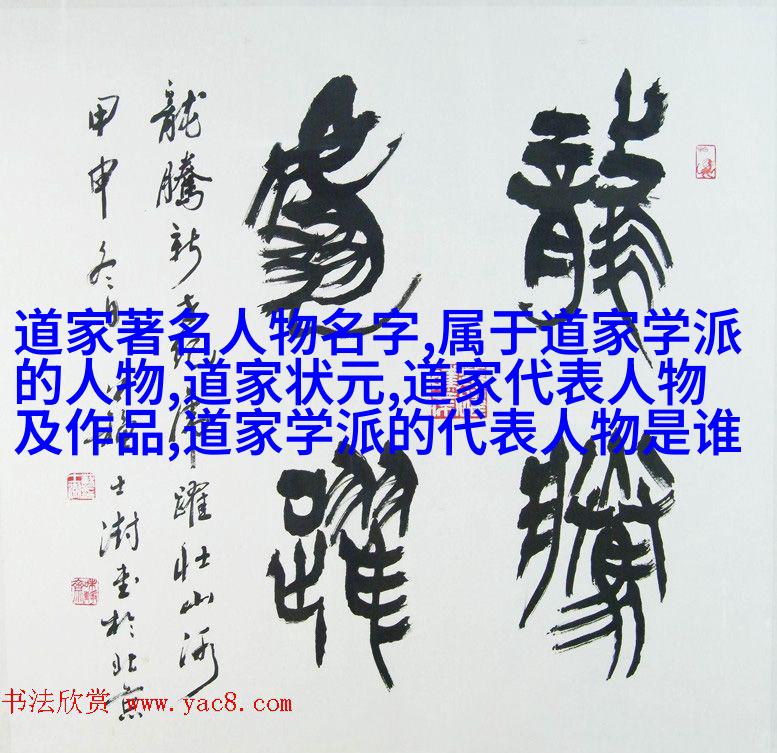 龍騰
虎躍
龍騰新
躍壯山河
甲申冬日
士澍書於北京
道家著名人物名字,属于道家学派
的人物,道家状元,道家代表人物
及作品,道家学派的代表人物是谁
书法欣赏 www.yac8.com